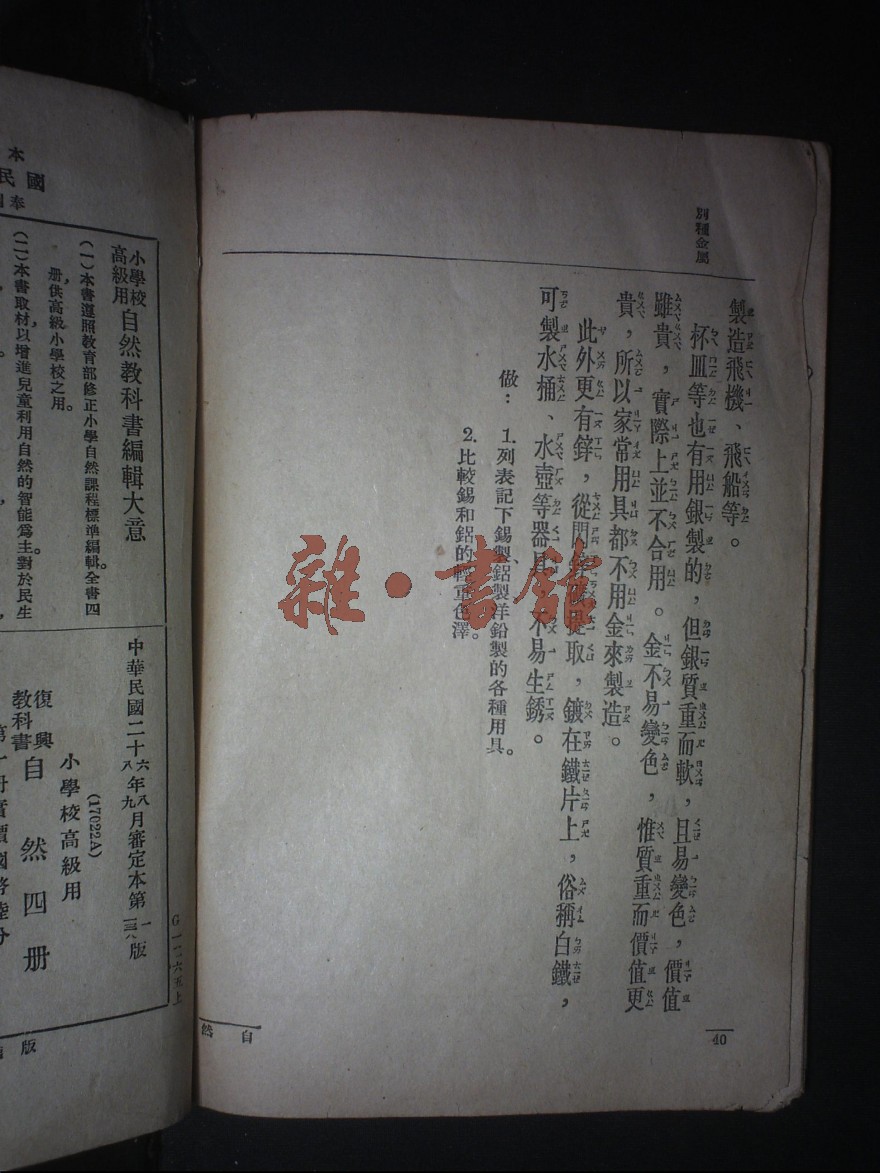 別種金屬
製造飛機、飛船等。
杯皿等也有用銀製的，但銀質重而軟，且易變色，價值
雖貴，實際上並不合用。金不易變色，惟質重而價值更
貴，所以家常用具都不用金來製造。
此外更有鋅，從閃鋅礦提取，鍍在鐵片上，俗稱白鐵，
可製水桶、水壺等器具，不易生銹。
做：1.列表記下錫製、鋁製、洋鉛製的各種用具。
2.比較錫和鋁的輕重色澤。
40
自然
雜·書館
小學校高級用 自然教科書編輯大意
(一)本書遵照教育部修正小學自然課程標準編輯，全書四
册，供高級小學校之用。
(二)本書取材以增進兒童利用自然的智能爲主，對於民生
中華民國二十六年八月審定本第一版
八九
(17022A)
小學校高級用
復興教科書 自然四册
G一一六五上
版
本
國民